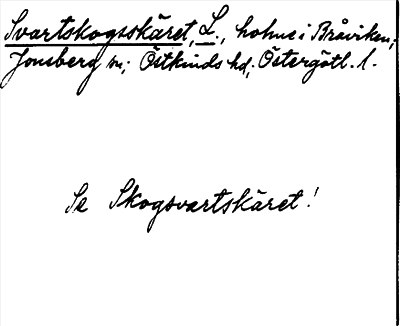 Svartskogsskäret, L., holme i Bråviken,
Jonsberg sn, Östkinds hd, Östergötl. l.
Se Skogsvartskäret!